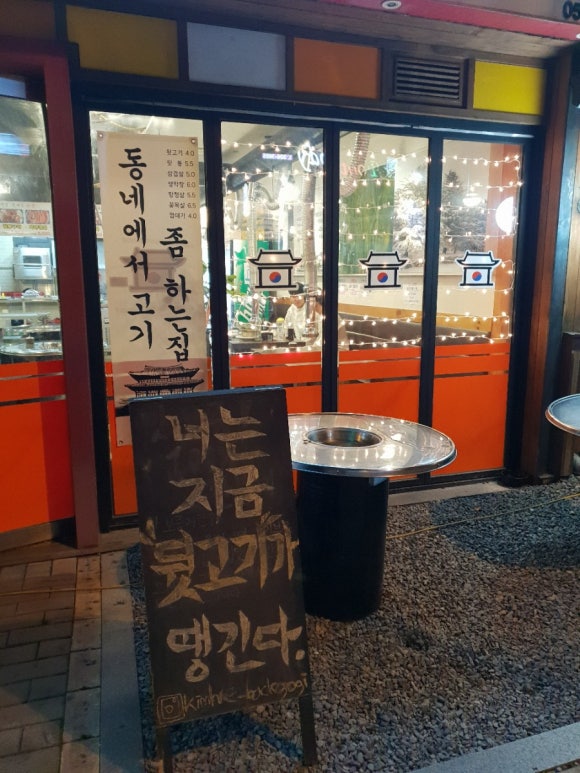 동네에서 고기
좀 하는 집
뒷고기 4.0
막창 5.5
삼겹살 5.0
생막창 6.0
항정살 5.5
꽃목살 6.5
껍데기 4.0
너는
지금
뒷고기가
땡긴다.